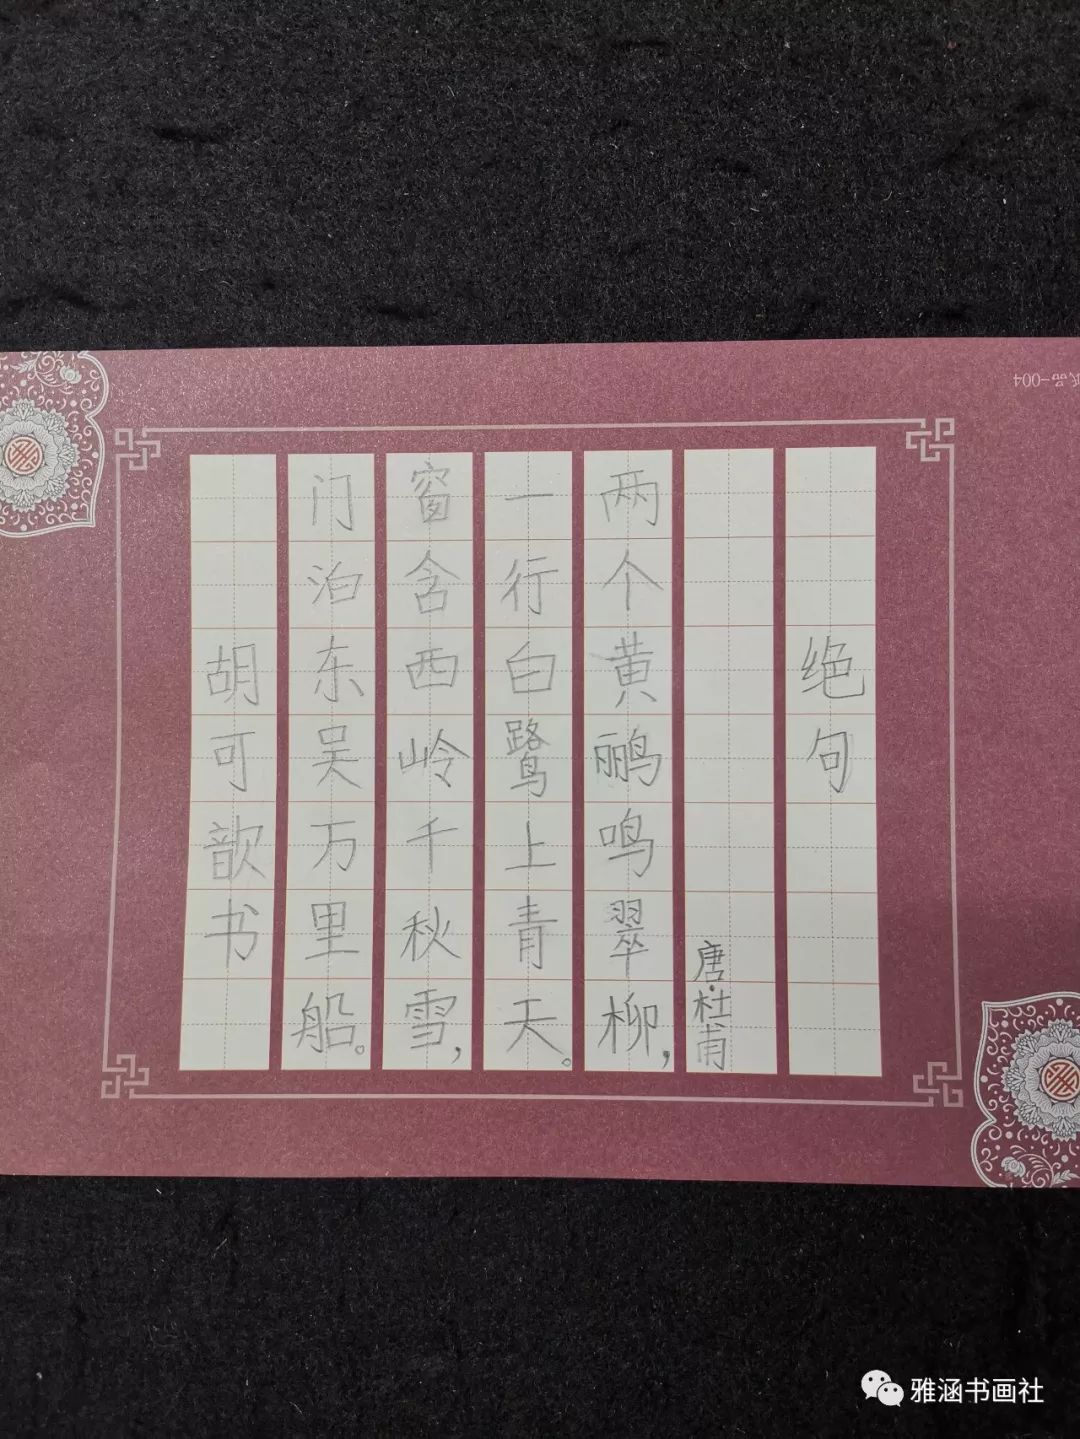 绝句
唐·杜甫
两个黄鹂鸣翠柳，
一行白鹭上青天。
窗含西岭千秋雪，
门泊东吴万里船。
胡可歆书
品-004
雅涵书画社